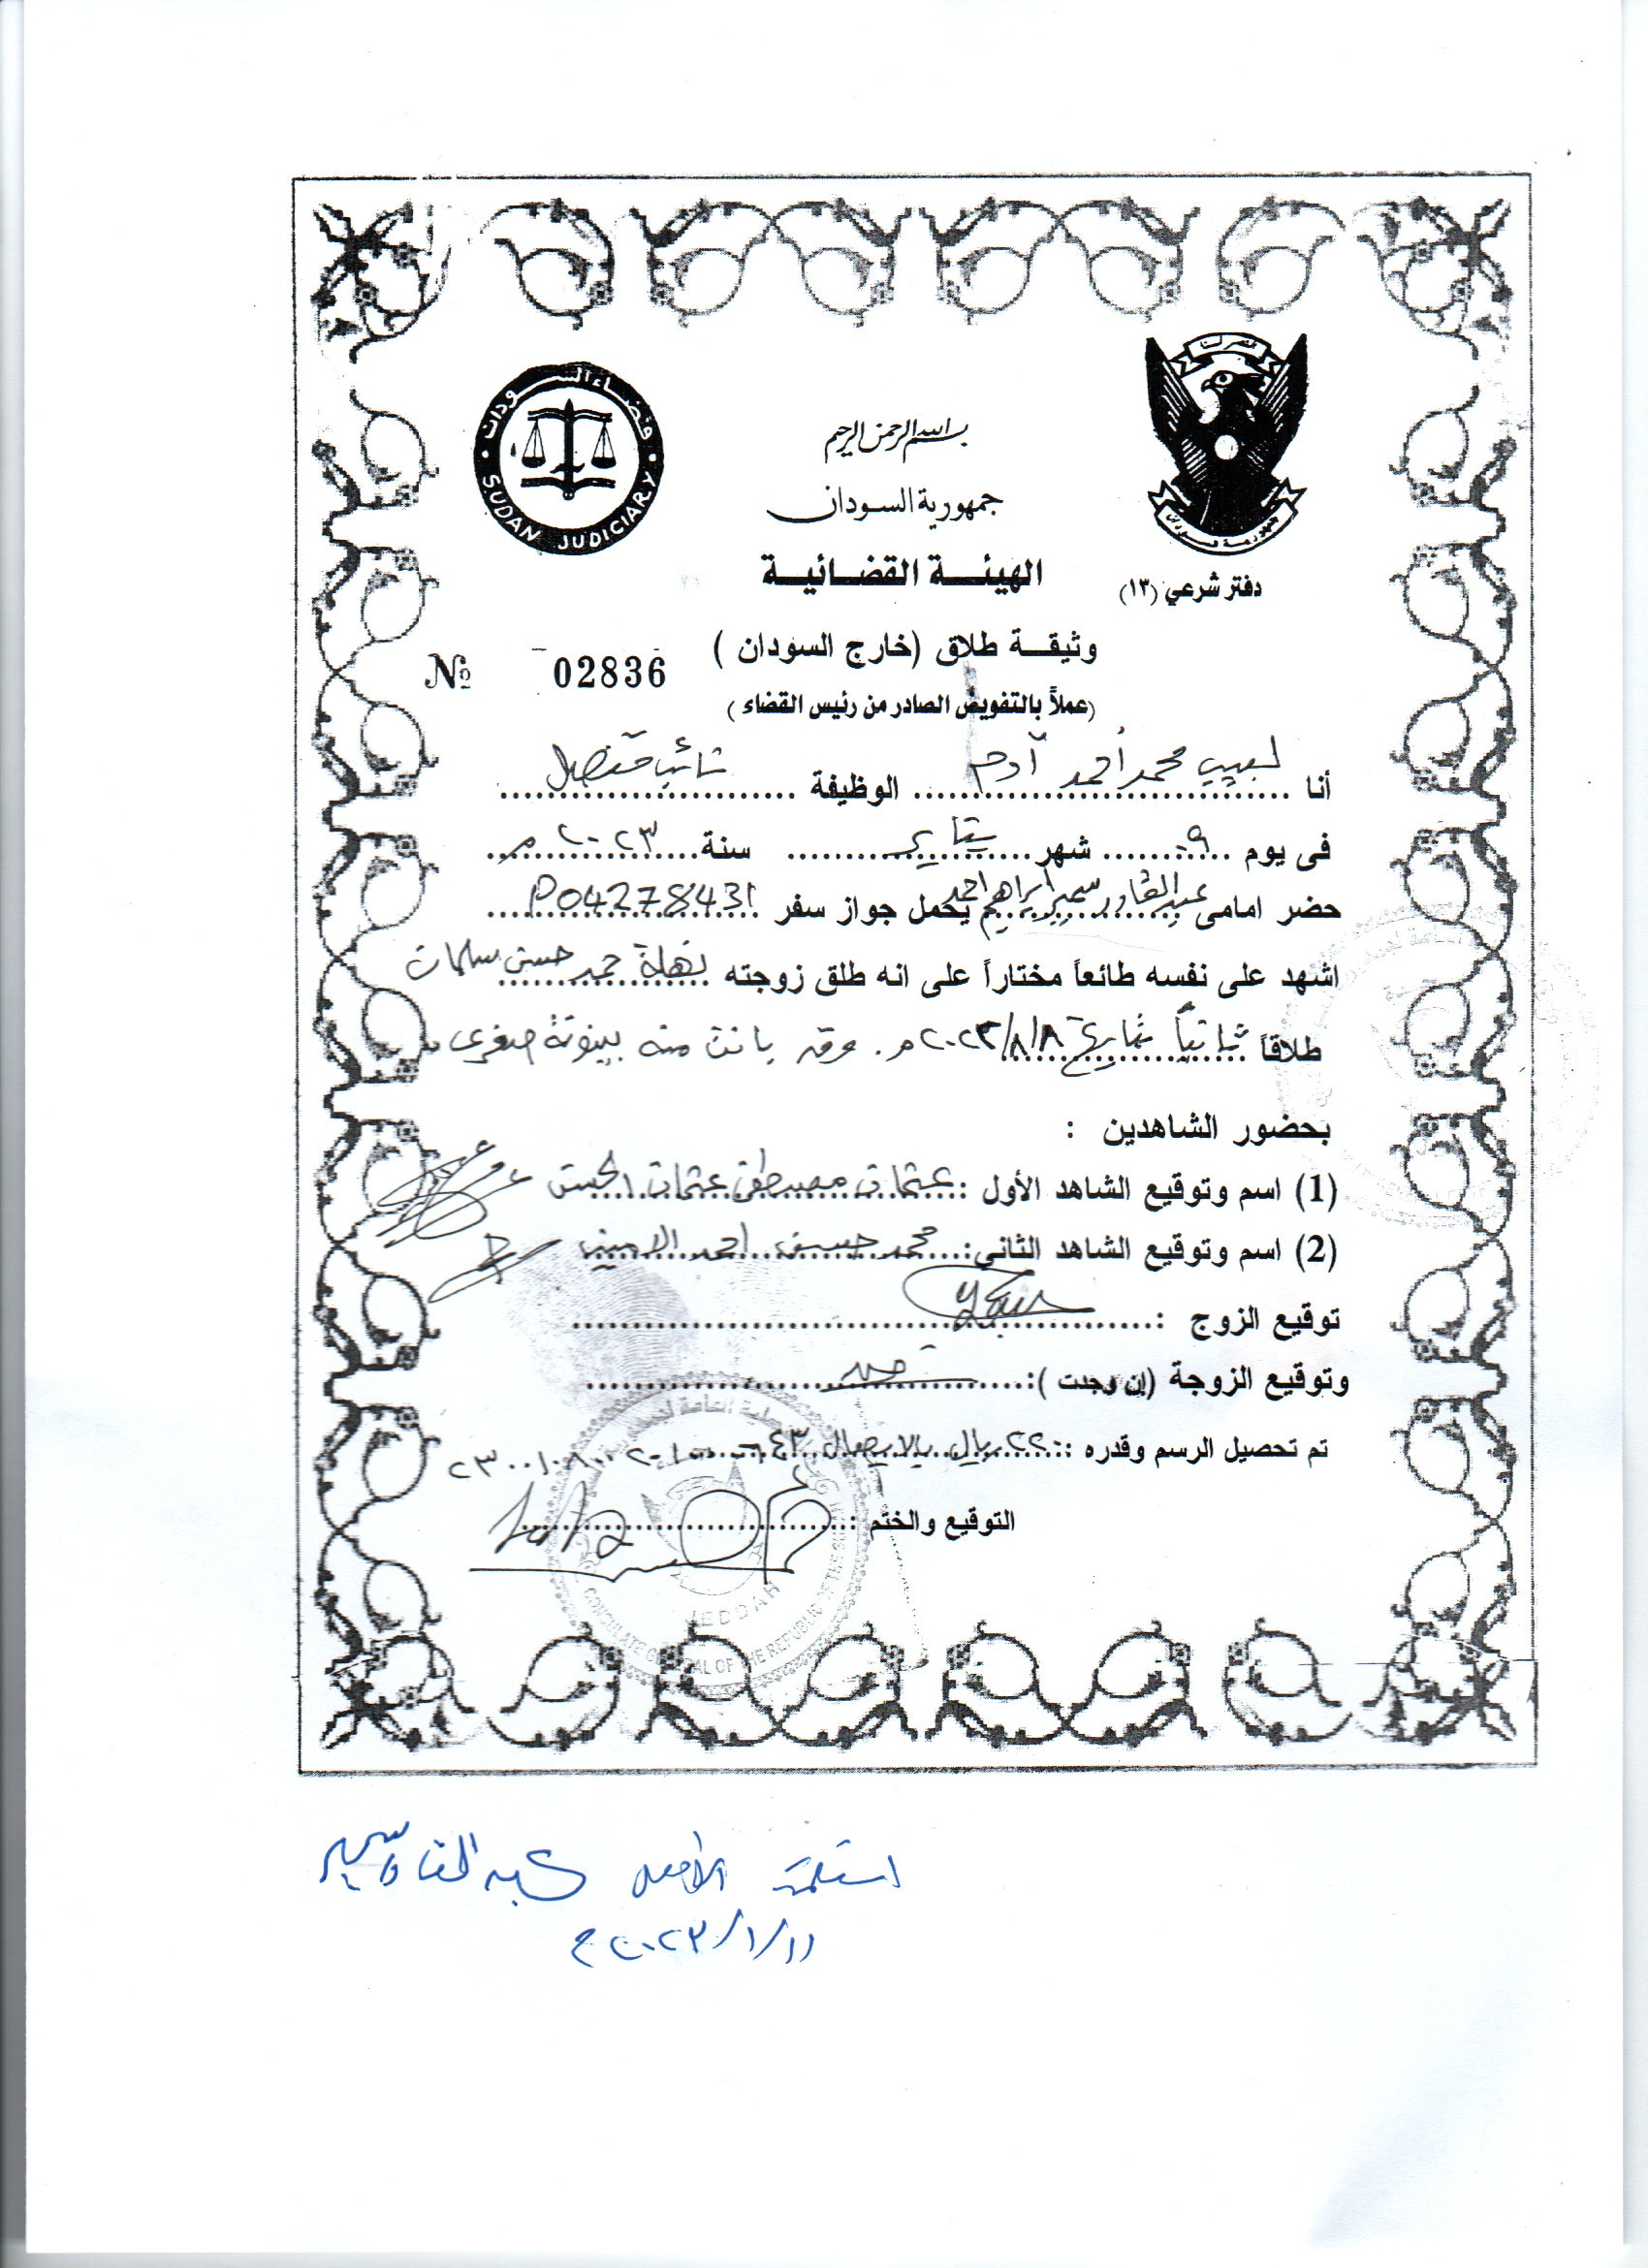 النصر لنا
جمهورية السودان
قضاء السودان
SUDAN JUDICIARY
بسم الله الرحمن الرحيم
جمهورية السودان
الهيئة القضائية
دفتر شرعي (١٣)
وثيقة طلاق (خارج السودان )
№ 02836
(عملاً بالتفويض الصادر من رئيس القضاء )
أنا لبيب محمد أحمد آدم الوظيفة نائب قنصل
فى يوم ٠٩ شهر يناير سنة ٢٠٢٣م
حضر امامى عبدالقادر سمير ابراهيم احمد يحمل جواز سفر P04278431
اشهد على نفسه طائعاً مختاراً على انه طلق زوجته نهلة حمد حسن سلمان
طلاقاً ثانياً بتاريخ ٢٠٢٢/٨/٨م. وقد بانت منه بينونة صغرى
بحضور الشاهدين :
(1) اسم وتوقيع الشاهد الأول : عثمان مصطفى عثمان الحسن
(2) اسم وتوقيع الشاهد الثانى: محمد حسين احمد الامين
توقيع الزوج :
وتوقيع الزوجة (إن وجدت ):
تم تحصيل الرسم وقدره : ٢٢٠ ريال بالايصال
التوقيع والختم :
JEDDAH
CONSULATE GENERAL OF THE REPUBLIC OF THE SUDAN
استلمت الأصل عبدالقادر سمير
٢٠٢٣/١/١١م